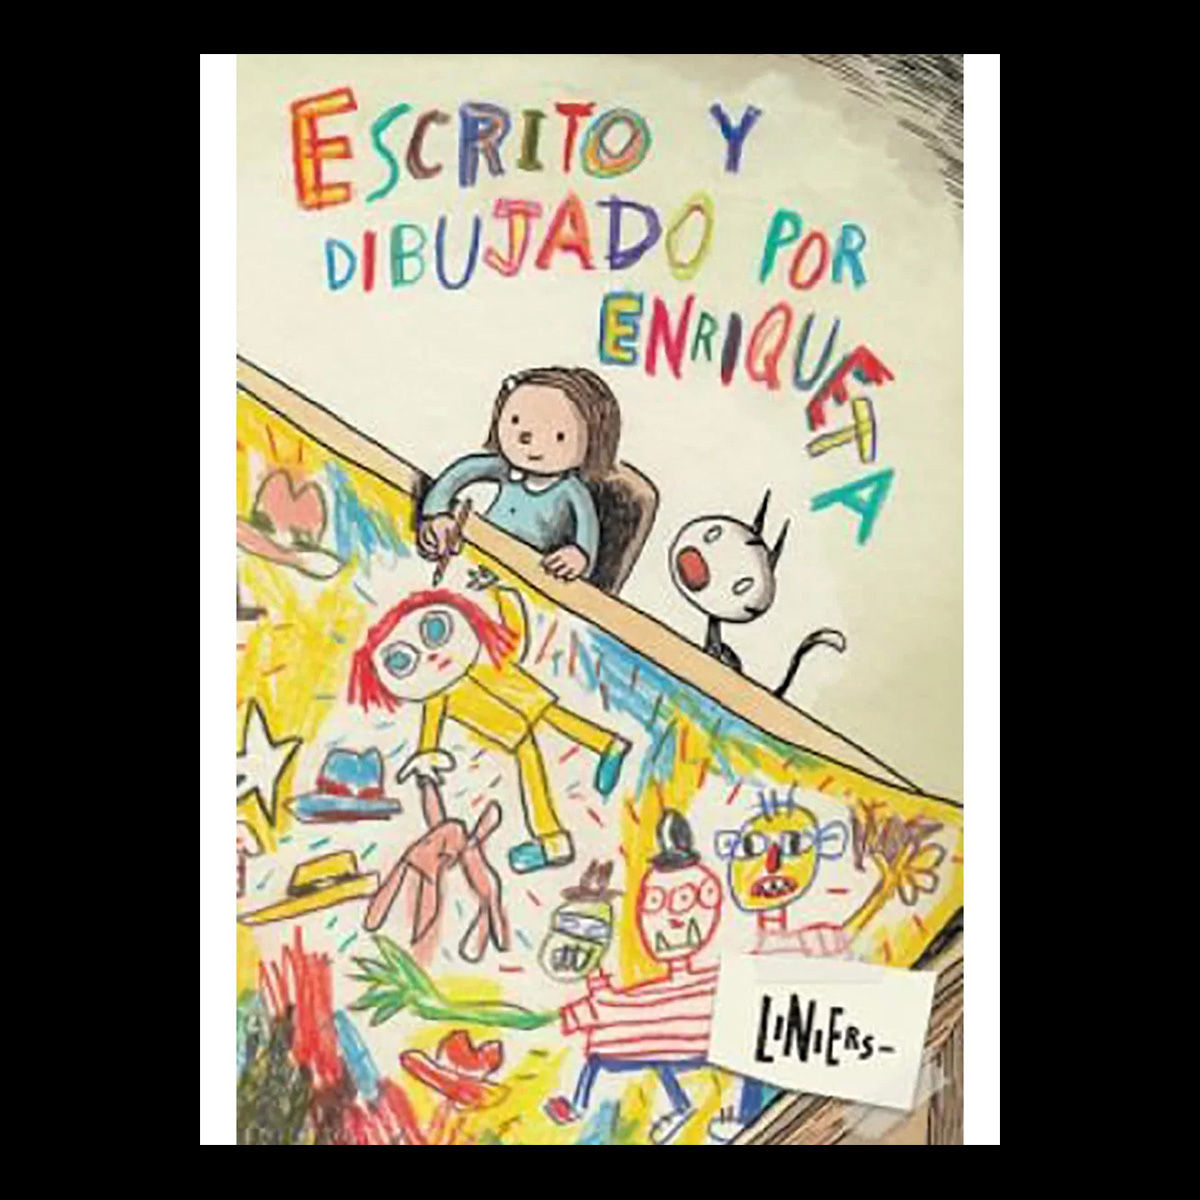 ESCRITO Y
DIBUJADO POR
ENRIQUETA
LINIERS-